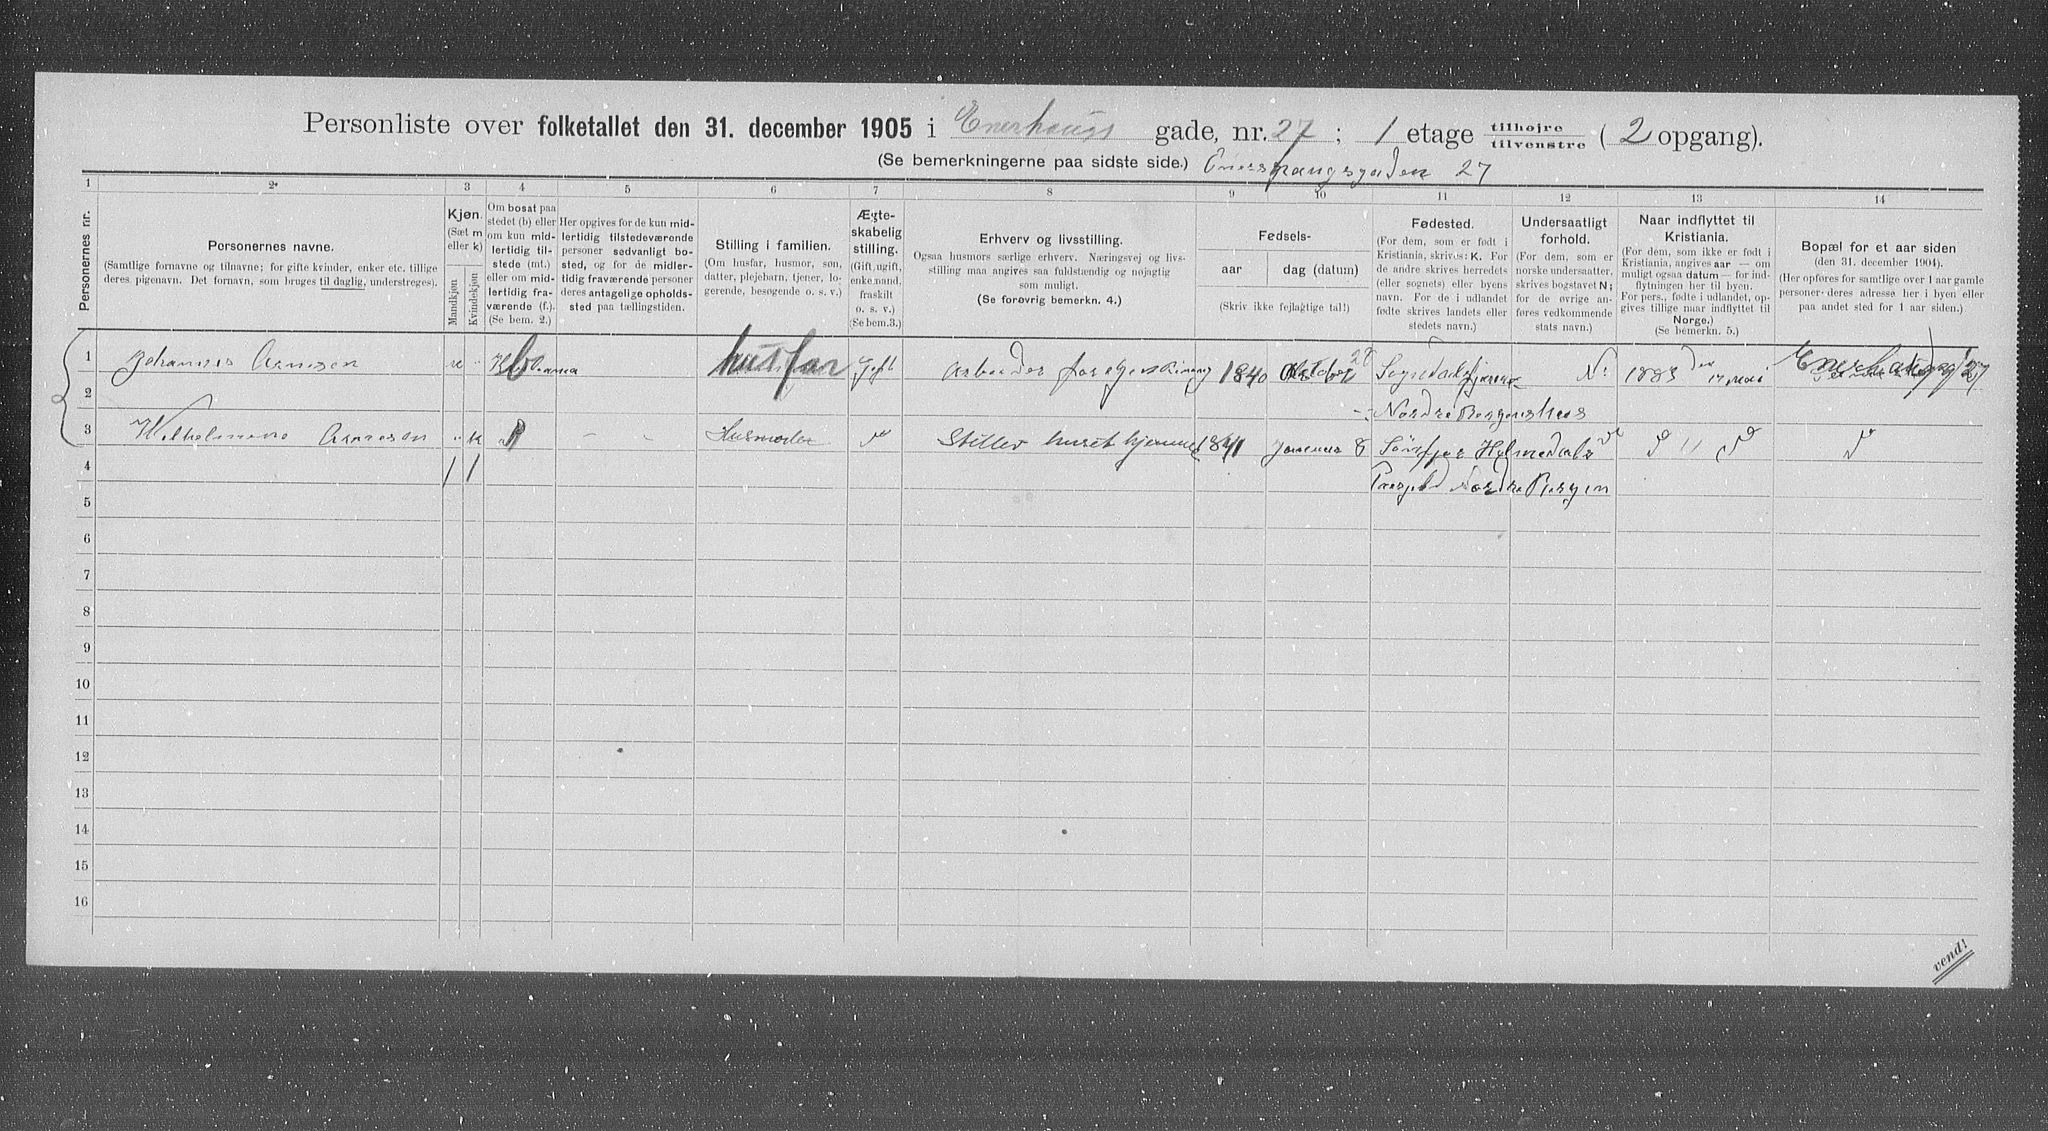 Personliste over folketallet den 31. december 1905 i Enerhaugs gade, nr. 27; 1 etage tilhøjre / tilvenstre (2 opgang).
(Se bemerkningerne paa sidste side.) 27
1 2* 3 4 5 6 7 8 9 10 11 12 13 14
Personernes nr.
Personernes navne.
(Samtlige fornavne og tilnavne; for gifte kvinder, enker etc. tillige
deres pigenavn. Det fornavn, som bruges til daglig, understreges).
Kjøn.
(Sæt m
eller k)
Mandkjøn
Kvindekjøn
Om bosat paa
stedet (b) eller
om kun mid-
lertidig til-
stede (mt.)
eller om mid-
lertidig fra-
værende (f.).
(Se bem. 2.)
Her opgives for de kun mid-
lertidig tilstedeværende
personer sedvanligt bo-
sted, og for de midler-
tidig fraværende personer
deres antagelige opholds-
sted paa tællingstiden.
Stilling i familien.
(Om husfar, husmor, søn,
datter, plejebarn, tjener, lo-
gerende, besøgende o. s. v.)
Ægte-
skabelig
stilling.
(Gift, ugift,
enkemand,
fraskilt
o. s. v.)
(Se bem.3.)
Erhverv og livsstilling.
Ogsaa husmors særlige erhverv. Næringsvej og livs-
stilling maa angives saa fuldstændig og nøjagtig
som muligt.
(Se forøvrig bemerkn. 4.)
Fødsels-
aar dag (datum)
(Skriv ikke fejlagtige tal!)
Fødested.
(For dem, som er født i
Kristiania, skrives: K. For
de andre skrives herredets
(eller sognets) eller byens
navn. For de i udlandet
fødte skrives landets eller
stedets navn.)
Undersaatligt
forhold.
(For dem, som er
norske undersaatter,
skrives bogstavet N;
for de øvrige an-
føres vedkommende
stats navn.)
Naar indflyttet til
Kristiania.
(For dem, som ikke er født i
Kristiania, angives aar — om
muligt ogsaa datum — for ind-
flytningen her til byen.
For pers., fødte i udlandet, op-
gives tillige naar indflyttet til
Norge.)
(Se bemerkn. 5.)
Bopæl for et aar siden
(den 31. december 1904).
(Her opføres for samtlige over 1 aar gamle
personer deres adresse her i byen eller
paa andet sted for 1 aar siden.)
1 Johannes Arnesen m b husfar Gift Arbeider 1840 Oktober 28 N. 1883 den 17 mai Enerhaugsg 27
2 Nordre Bergenshus
3 Wilhelmine Arnesen k Husmoder Steller huset hjemme 1841 Januar 8
4 1 1 Nordre Bergen
5
6
7
8
9
10
11
12
13
14
15
16
vend!